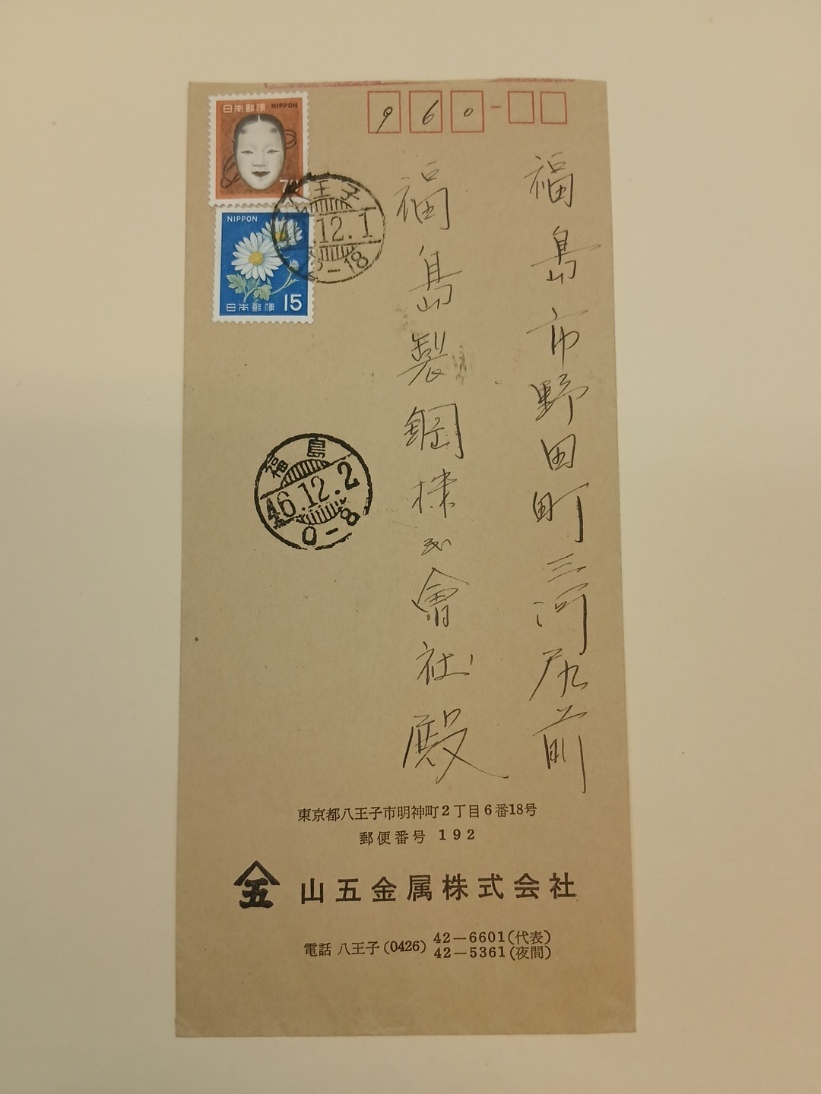 日本郵便 NIPPON
70
NIPPON
日本郵便 15
八王子
46.12.1
-18
960-
福島市野田町三河尻前
福島製鋼株式會社殿
福島
46.12.2
0-8
東京都八王子市明神町2丁目6番18号
郵便番号 192
五 山五金属株式会社
電話 八王子(0426) 42-6601(代表)
42-5361(夜間)